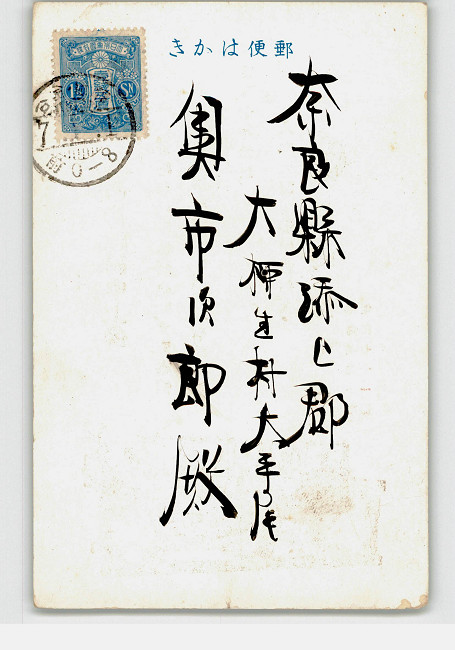 きかは便郵
奈良縣添上郡
大柳生村大平尾
奥市次郎殿
1½ Sn